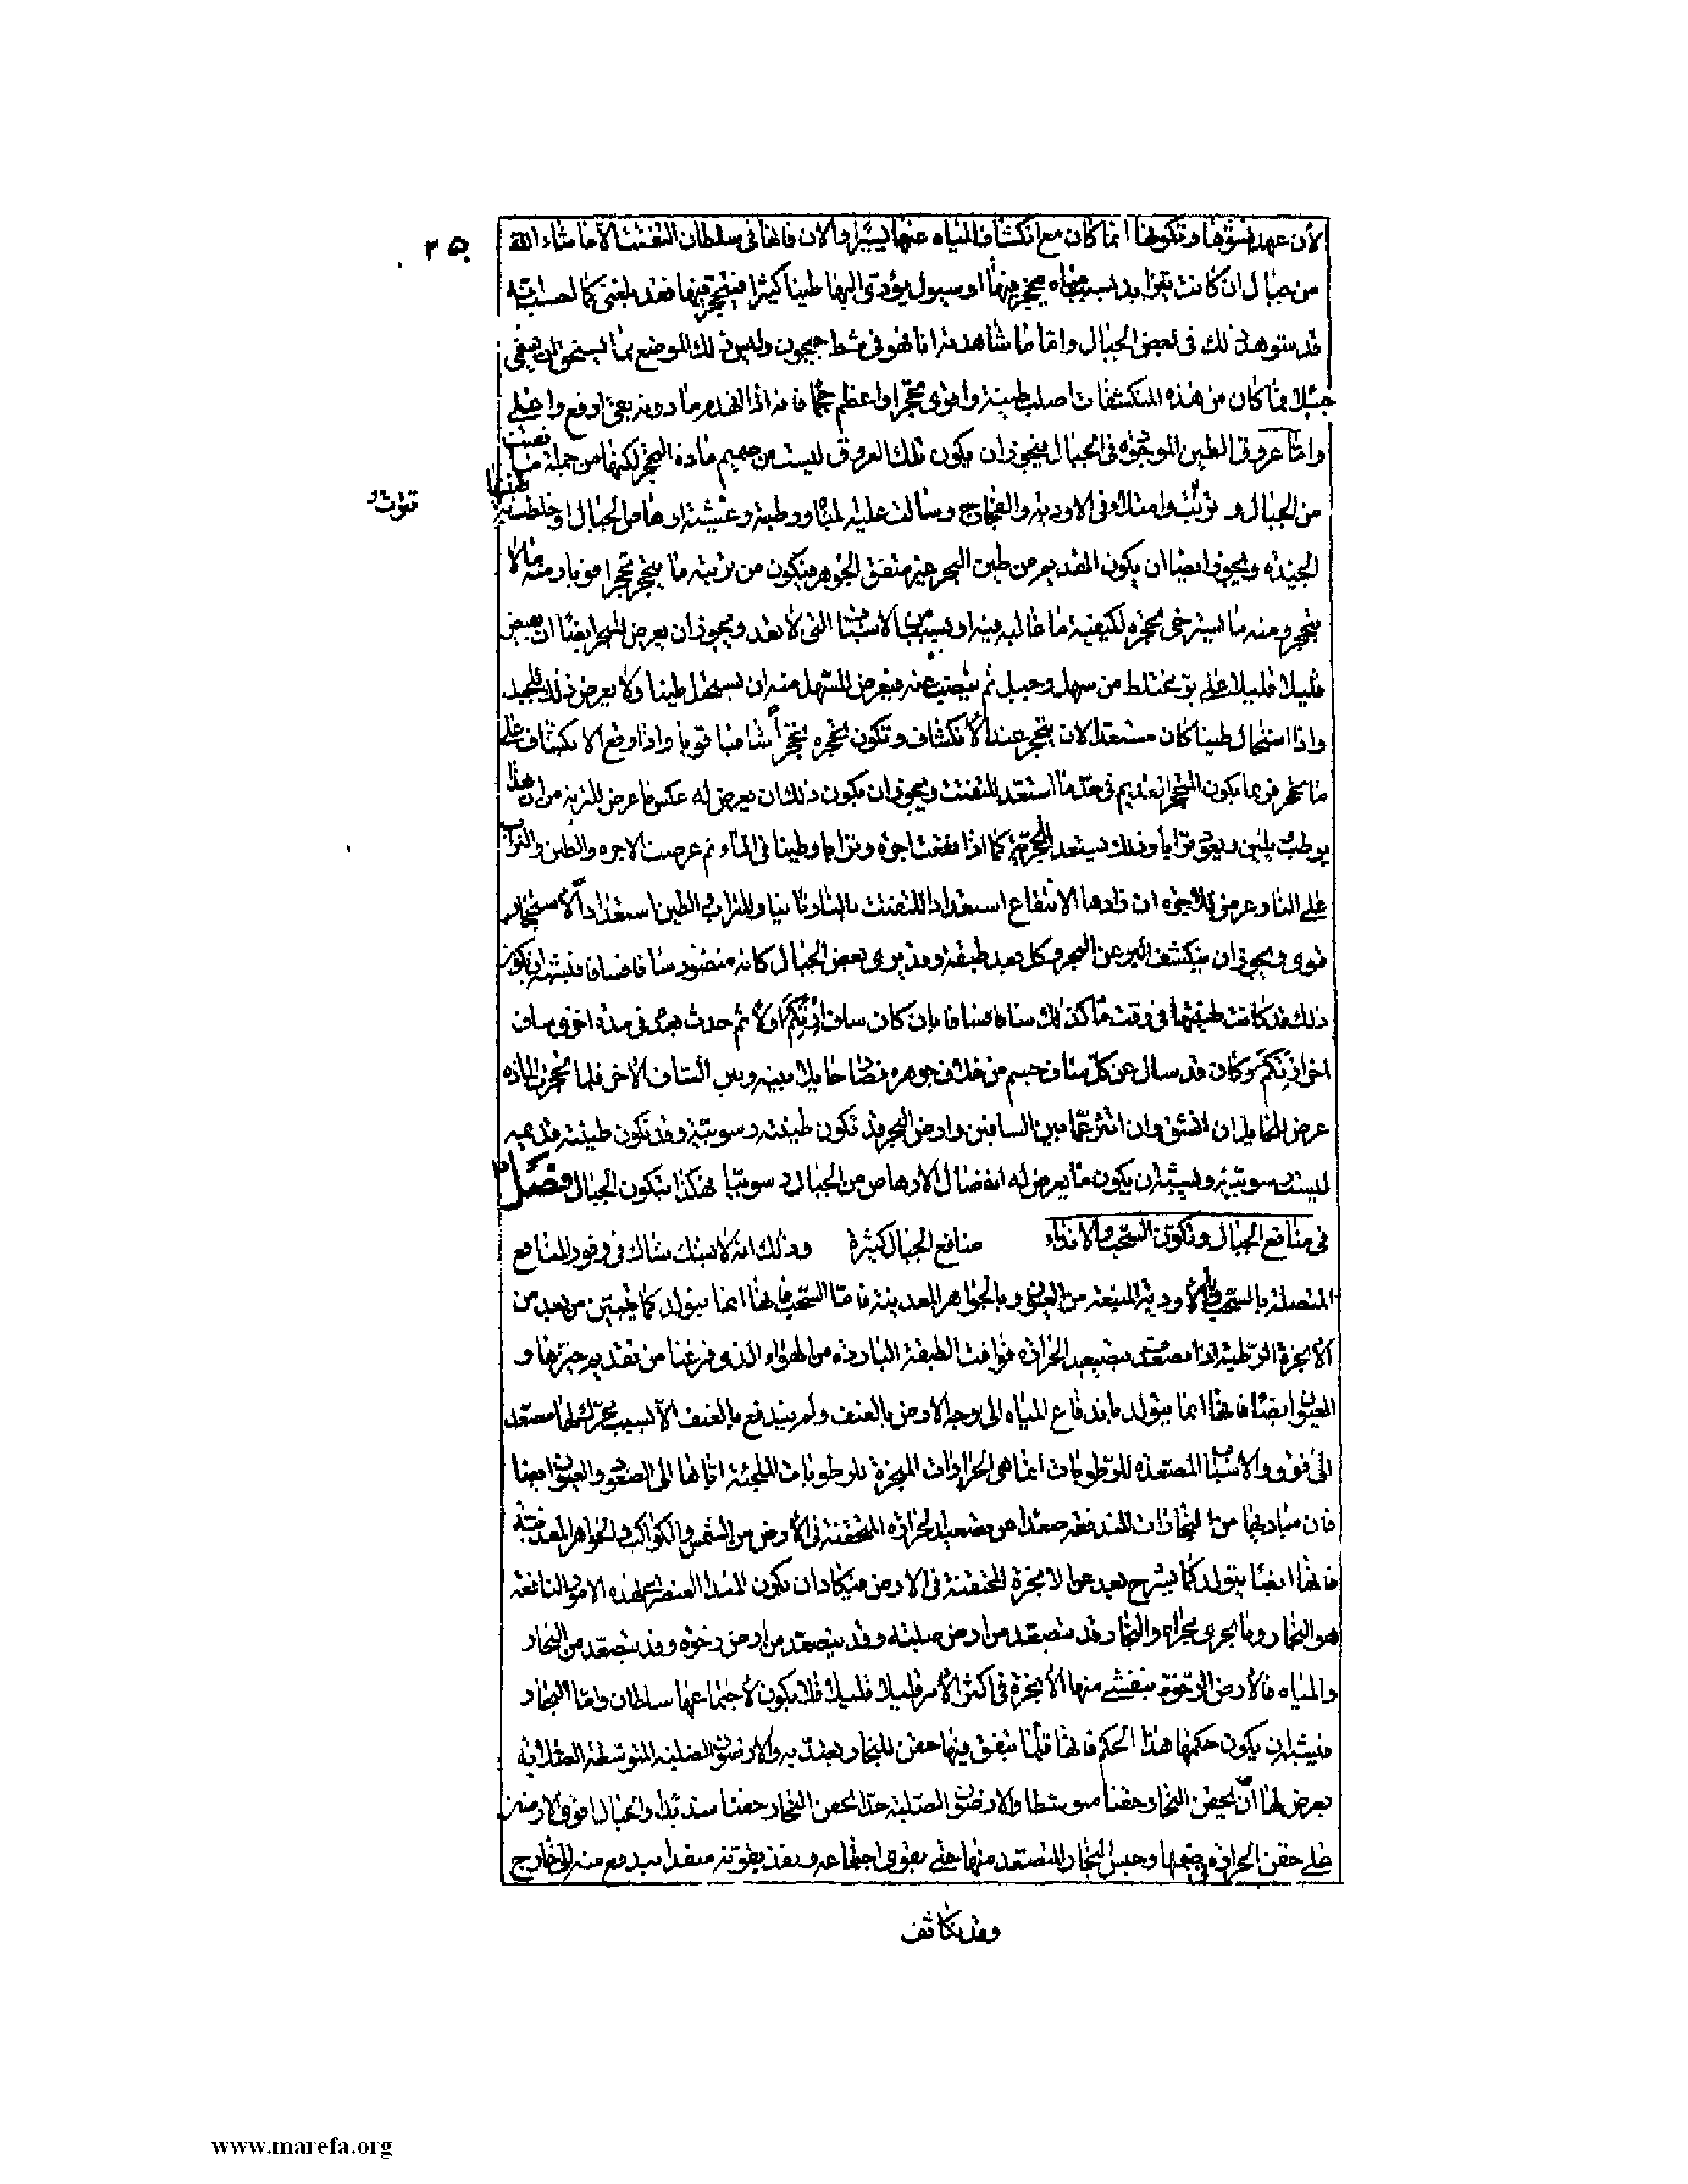 ٢٥٠
لأن عهد نشوها وتكونها انما كان مع انكشاف المياه عنها يسيرا والآن فانها فى سلطان التفتت الا ما شاء الله
من جبال ان كانت تتزايد بسبب مياه تتحجر فيها او سيول يؤدى اليها طينا كثيرا فيتحجر فيها فقد بلغنى كما احسب انه
قد شوهد ذلك فى بعض الجبال واما ما شاهدته انا فهو فى شط جيحون وليس ذلك الموضع مما يستحق ان يسمى
جبلا فما كان من هذه المنكشفات اصلب طينة واقوى تحجرا واعظم حجما فانه اذا انهدم ما دونه بقى ارفع واعلى
واما عروق الطين الموجودة فى الجبال فيجوز ان يكون تلك العروق ليست من صميم مادة التحجر لكنها من جملة ما تفتت
من الجبال و تترب وامتلأ فى الاودية والفجاج وسالت عليه المياه ورطبته وغشيته ارهاص الجبال او خلطت به طينتها
الجيدة ويجوز ايضا ان يكون القديم من طين البحر غير متفق الجوهر فيكون من تربته ما يتحجر تحجرا قويا ومنه ما لا
يتحجر ومنه ما يسترخى تحجره لكيفية ما غالبة فيه او بسبب من الاسباب التى لا تعد ويجوز ان يعرض للبحر ايضا ان يفيض
قليلا قليلا على بر مختلط من سهل وجبل ثم ينضب عنه فيعرض للسهل منه ان يستحيل طينا ولا يعرض ذلك للجبل
واذا استحال طينا كان مستعدا لان يتحجر عند الانكشاف وتكون تحجره تحجرا شافيا قويا واذا وقع الانكشاف على
ما تحجر فربما يكون المتحجر القديم فى حد ما استعد للتفتت ويجوز ان يكون ذلك ان يعرض له عكس ما عرض للتربة من ان هذا
يرطب ويلين ويعود ترابا وذلك يستعد للحجرية كما اذا نقعت اجرة وترابا وطينا فى الماء ثم عرضت الاجرة والطين والتراب
على النار عرض للاجرة ان زادها الانتقاع استعدادا للتفتت بالنار ثانيا وللتراب والطين استعدادا لاستحجار
قوى ويجوز ان ينكشف البر عن البحر وكل بعد طبقة وقد يرى بعض الجبال كانه منضود سافا فسافا فيشبه ان يكون
ذلك قد كانت طينتها فى وقت ما كذلك سافا فسافا بان كان ساف ارتكم اولا ثم حدث بعده فى مدة اخرى ساف
اخر ارتكم وكان قد سال عن كل ساف جسم من خلاف جوهره فصار حايلا بينه وبين الساف الاخر فلما تحجرت المادة
عرض للحايل ان انشق وان انتثر عما بين السافين وارض البحر قد تكون طينته رسوبية وقد تكون طينته قديمة
ليست رسوبية ويشبه ان يكون ما يعرض له انفصال الارهاص من الجبال رسوبيا فهكذا يتكون الجبال فصل ٢
فى منافع الجبال وتكون السحب والانداء منافع الجبال كثيرة وذلك انه لا يشك شاك فى وفور المنافع
المتصلة بالسحب والاودية المنبعثة من العيون وبالجواهر المعدنية فاما السحب فانها انما يتولد كما يتبين من بعد من
الابخرة الرطبة اذا تصعدت بتصعيد الحرارة فوافت الطبقة الباردة من الهواء الذى فرغنا من تقديم خبرها و
العيون ايضا فانها انما يتولد باندفاع المياه الى وجه الارض بالعنف ولم يندفع بالعنف الا لسبب محرك لها مصعد
الى فوق والاسباب المصعدة للرطوبات انما هى الحرارات المبخرة للرطوبات الملجئة اياها الى الصعود والعيون ايضا
فان مباديها من البخارات المندفعة صعدا عن تصعيد الحرارة المحتقنة فى الارض من الشمس والكواكب والجواهر المعدنية
فانها ايضا يتولد كما يشرح بعد عن الابخرة المحتقنة فى الارض فيكاد ان يكون المبدا العنصرى لهذه الامور النافعة
هو البخار وما يجرى مجراه والبخار قد يتصعد من ارض صلبة وقد يتصعد من ارض رخوة وقد يتصعد من البحار
والمياه فالارض الرخوة يتفشى منها الابخرة فى اكثر الامر قليلا قليلا فلا يكون لاجتماعها سلطان واما البحار
فيشبه ان يكون حكمها هذا الحكم فانها قلما يتفق فيها حقن للبخار يعتد به والارضون الصلبة المتوسطة الصلابة
يعرض لها ان يحقن البخار حقنا متوسطا والارضون الصلبة جدا تحقن البخار حقنا شديدا والجبال اقوى الارضين
على حقن الحرارة فى ضمنها وحبس البخار المتصعد منها حتى يقوى اجتماعه وينفذ بقوته منفذا يندفع منه الى خارج
وقد تكاثف
www.marefa.org